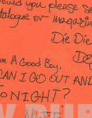 ould you please se
talogue or magazin
Die Die
Do
m A Good Boy,
AN I GO OUT AND
ONIGHT?